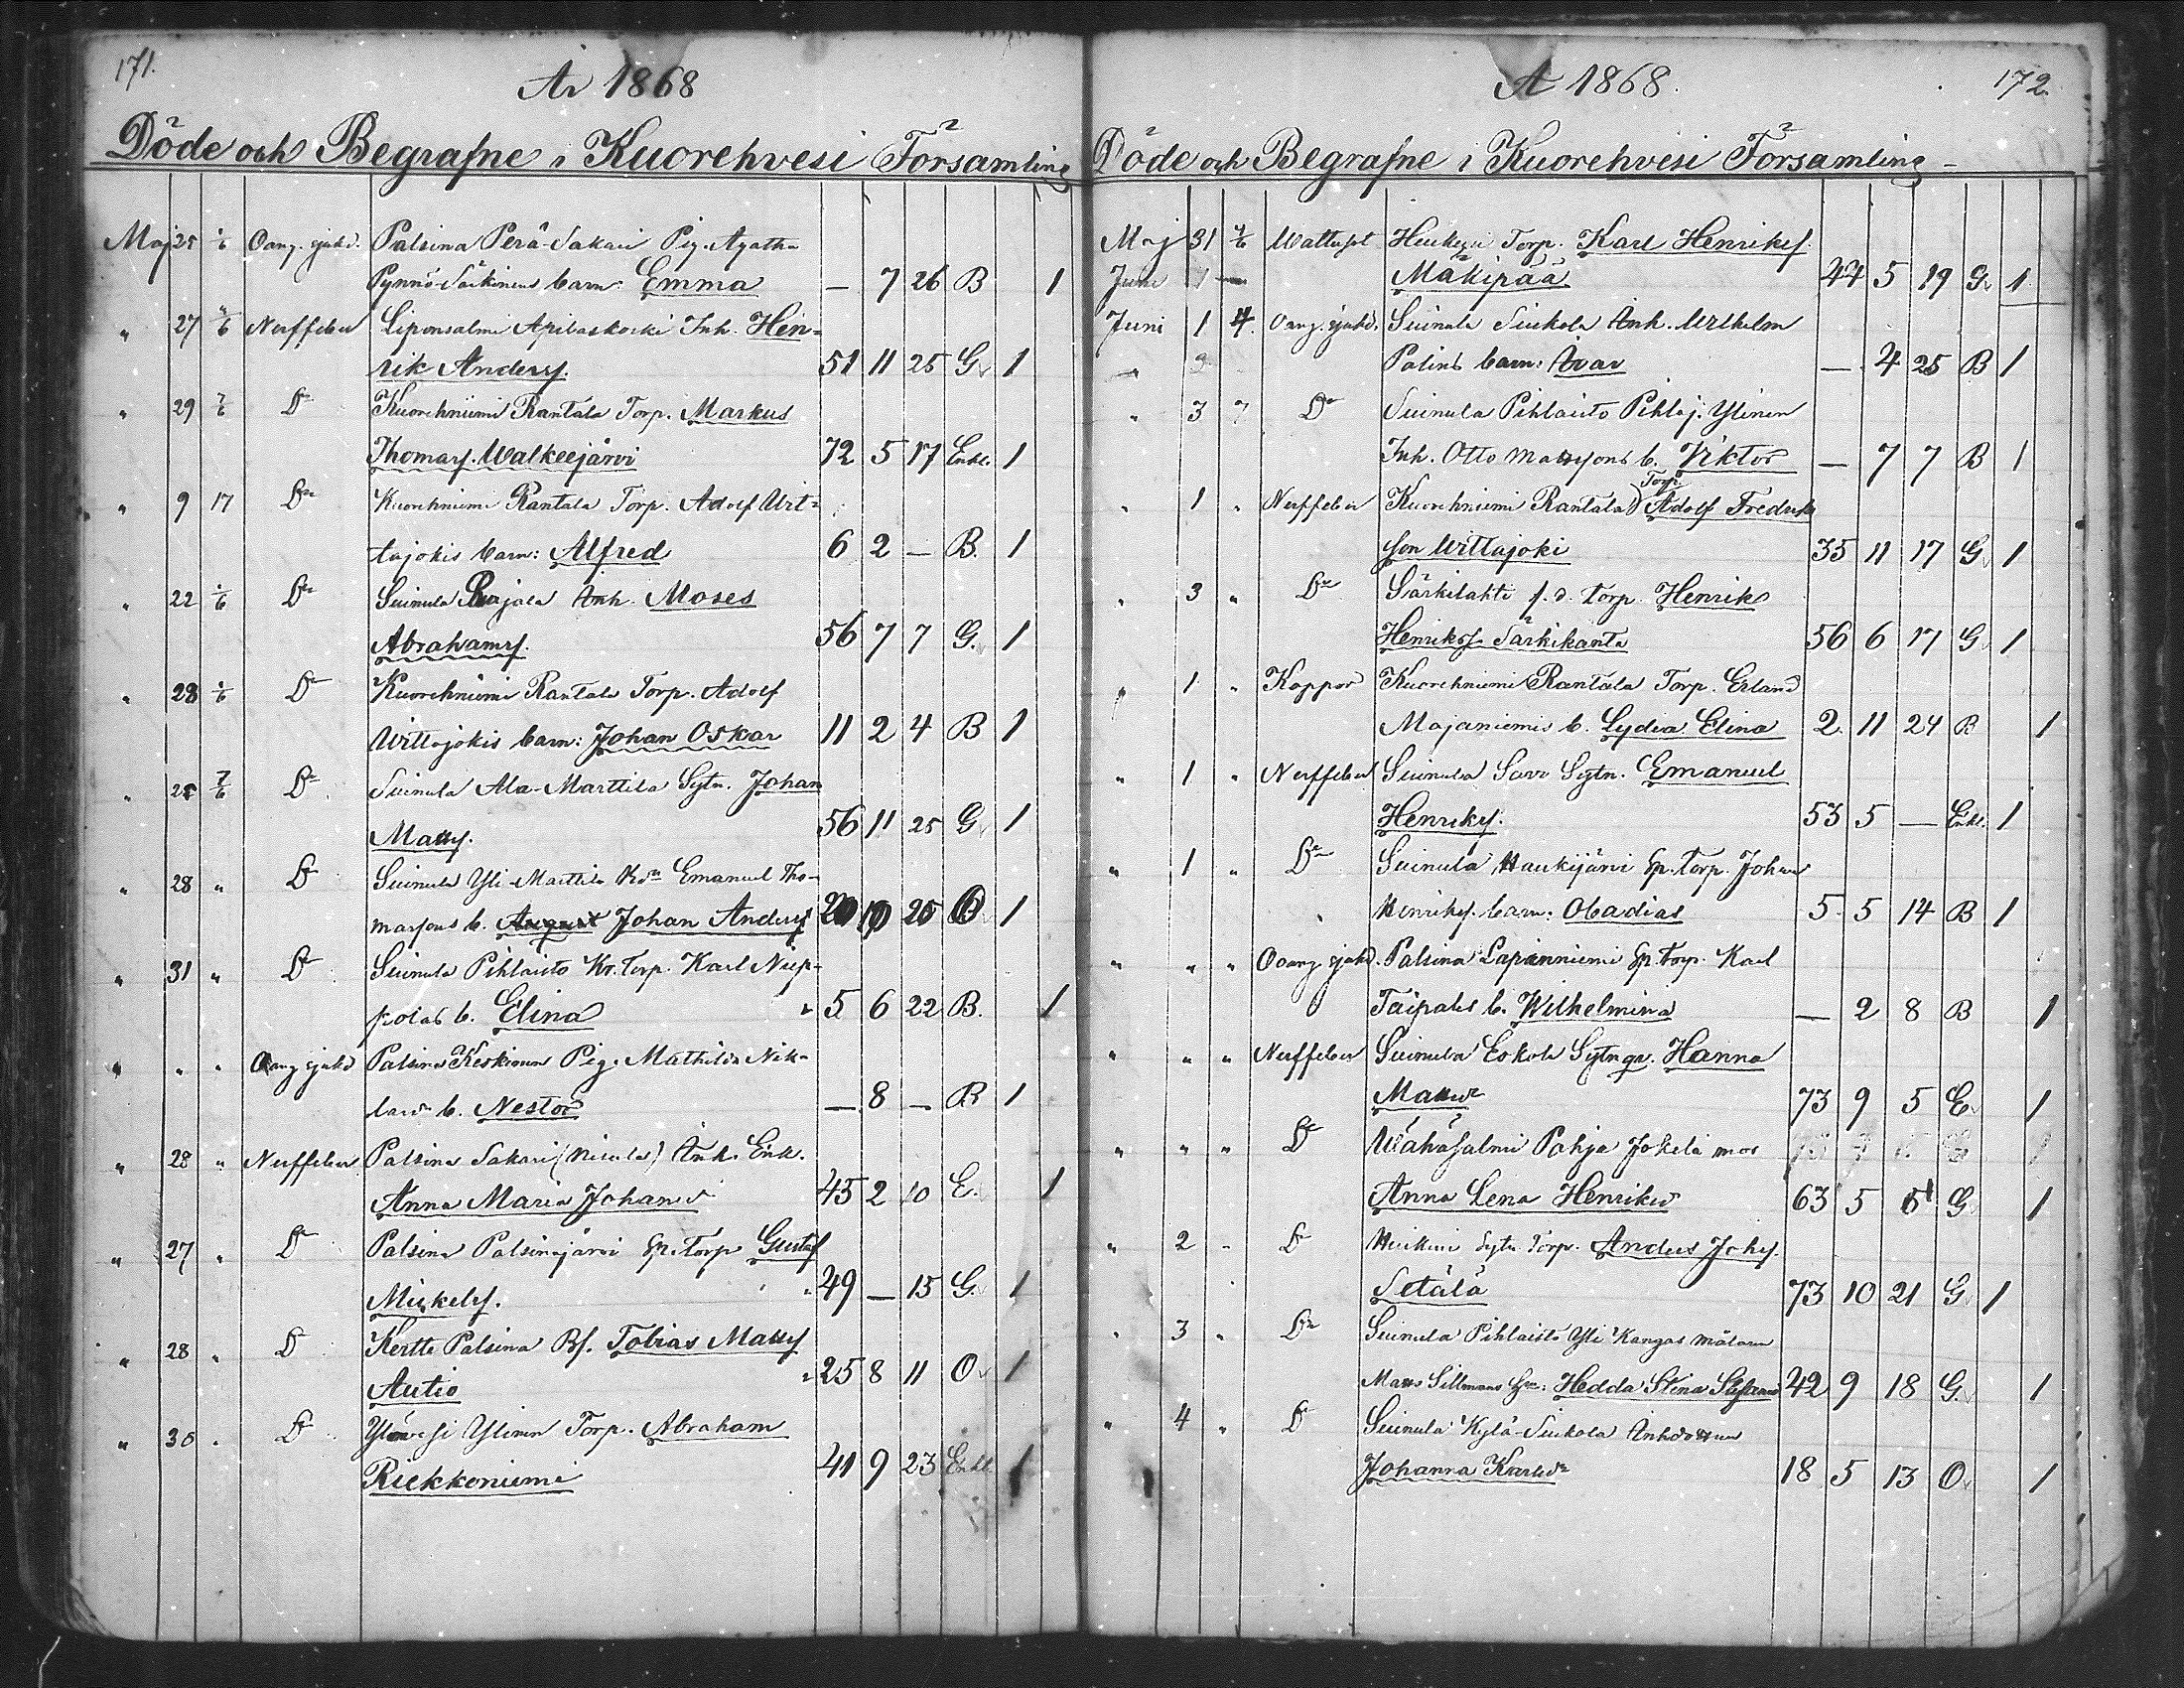 171.
År 1868
Döde och Begrafne i Kuorehvesi Församling
Maj 25 1/6 Oang. sjukd. Palsina Perä-Sakari Pig. Agatha
Pynnö-Säkinens barn: Emma — 7 26 B 1
" 27 /6 Nerffeber Liponsalmi Apilaskoski Inh. Hen-
rik Anderss. 51 11 25 G 1
" 29 7/6 Do Kuorehniemi Rantala Torp. Markus
Thomass. Walkeejärvi 72 5 17 Enkl. 1
" 9 17 Do Kuorehniemi Rantala Torp. Adolf Wit-
tajokis barn: Alfred 6 2 — B. 1
" 22 1/6 Do Suinula Rajala Inh. Moses
Abrahams. 56 7 7 G. 1
" 28 1/6 Do Kuorehniemi Rantala Torp. Adolf
Wittajokis barn: Johan Oskar 11 2 4 B 1
" 7/6 Do Suinula Ala-Marttila Sytn. Johan
Matts. 56 11 25 G 1
" 28 " Do Suinula Yli-Marttila Emanuel Tho-
massons b. August Johan Anderss 1
" 31 " Do Suinula Pihlaisto Torp. Karl Niep-
polas b. Elina 5 6 22 B. 1
" " " Oang sjukd Palsina Keskinen Pig. Mathilda Nik-
b. Nestor — 8 — B 1
" 28 " Nerffeber Palsina Sakari (Nicula) Inh. Enk.
Anna Maria Johansd. 45 2 10 E. 1
" 27 " Do Palsina Palsinajärvi Sp. Torp Gustaf
Mickels. 49 — 15 G. 1
" 28 " Do Kertte Palsina Bs. Tobias Matts
Autio 25 8 11 O 1
" 30 " Do Ylinen Torp. Abraham
Riekkoniemi 41 9 23 Enkl. 1
172.
A 1868.
Döde och Begrafne i Kuorehvesi Församling
Maj 31 /6 Wattusot Torp. Karl Henrikss.
Juni 1 — Mäkipää 44 5 19 G 1
Juni 1 4. Oang. sjukd. Suinula Siukola Inh. Wilhelm
Palins barn: Ivar — 4 25 B 1
" 3 7 Do Suinula Pihlaisto Pihlaj. Ylinen
Inh. Otto Matssons b. Viktor — 7 7 B 1
" 1 " Nerffeber Kuorehniemi Rantala Torp. Adolf Fredriks
son Wittajoki 35 11 17 G 1
" 3 " Do Särkilahti f. d. Torp. Henrik
Henrikss. Särkikanta 56 6 17 G 1
" 1 " Koppor Kuorehniemi Rantala Torp. Erland
Majaniemis b. Lydia Elina 2 11 24 B 1
" 1 " Nerffeber Suinula Savo Sytn. Emanuel
Henrikss. 53 5 — Enkl. 1
" 1 " Do Suinula Haukijärvi Sp. Torp. Johan
Henrikss. barn: Obadias 5 5 14 B 1
" " " Oang sjukd. Palsina Lapinniemi Sp. torp. Karl
Taipales b. Wilhelmina — 2 8 B 1
" " " Nerffeber Suinula Eskola Sytnga. Hanna
Mattsd 73 9 5 E. 1
" " " Do Wähäsalmi Pohja Jokela mor
Anna Lena Henriksd 63 5 G 1
" 2 " Do Sytn Torp. Anders Johs.
Setälä 73 10 21 G 1
" 3 " Do Suinula Pihlaisto Yli Kangas målaren
Matts Sillmans Hedda Stina 42 9 18 G. 1
" 4 " Do Suinula Kylä-Siukola Inhdottren
Johanna Karlsdr 18 5 13 O 1